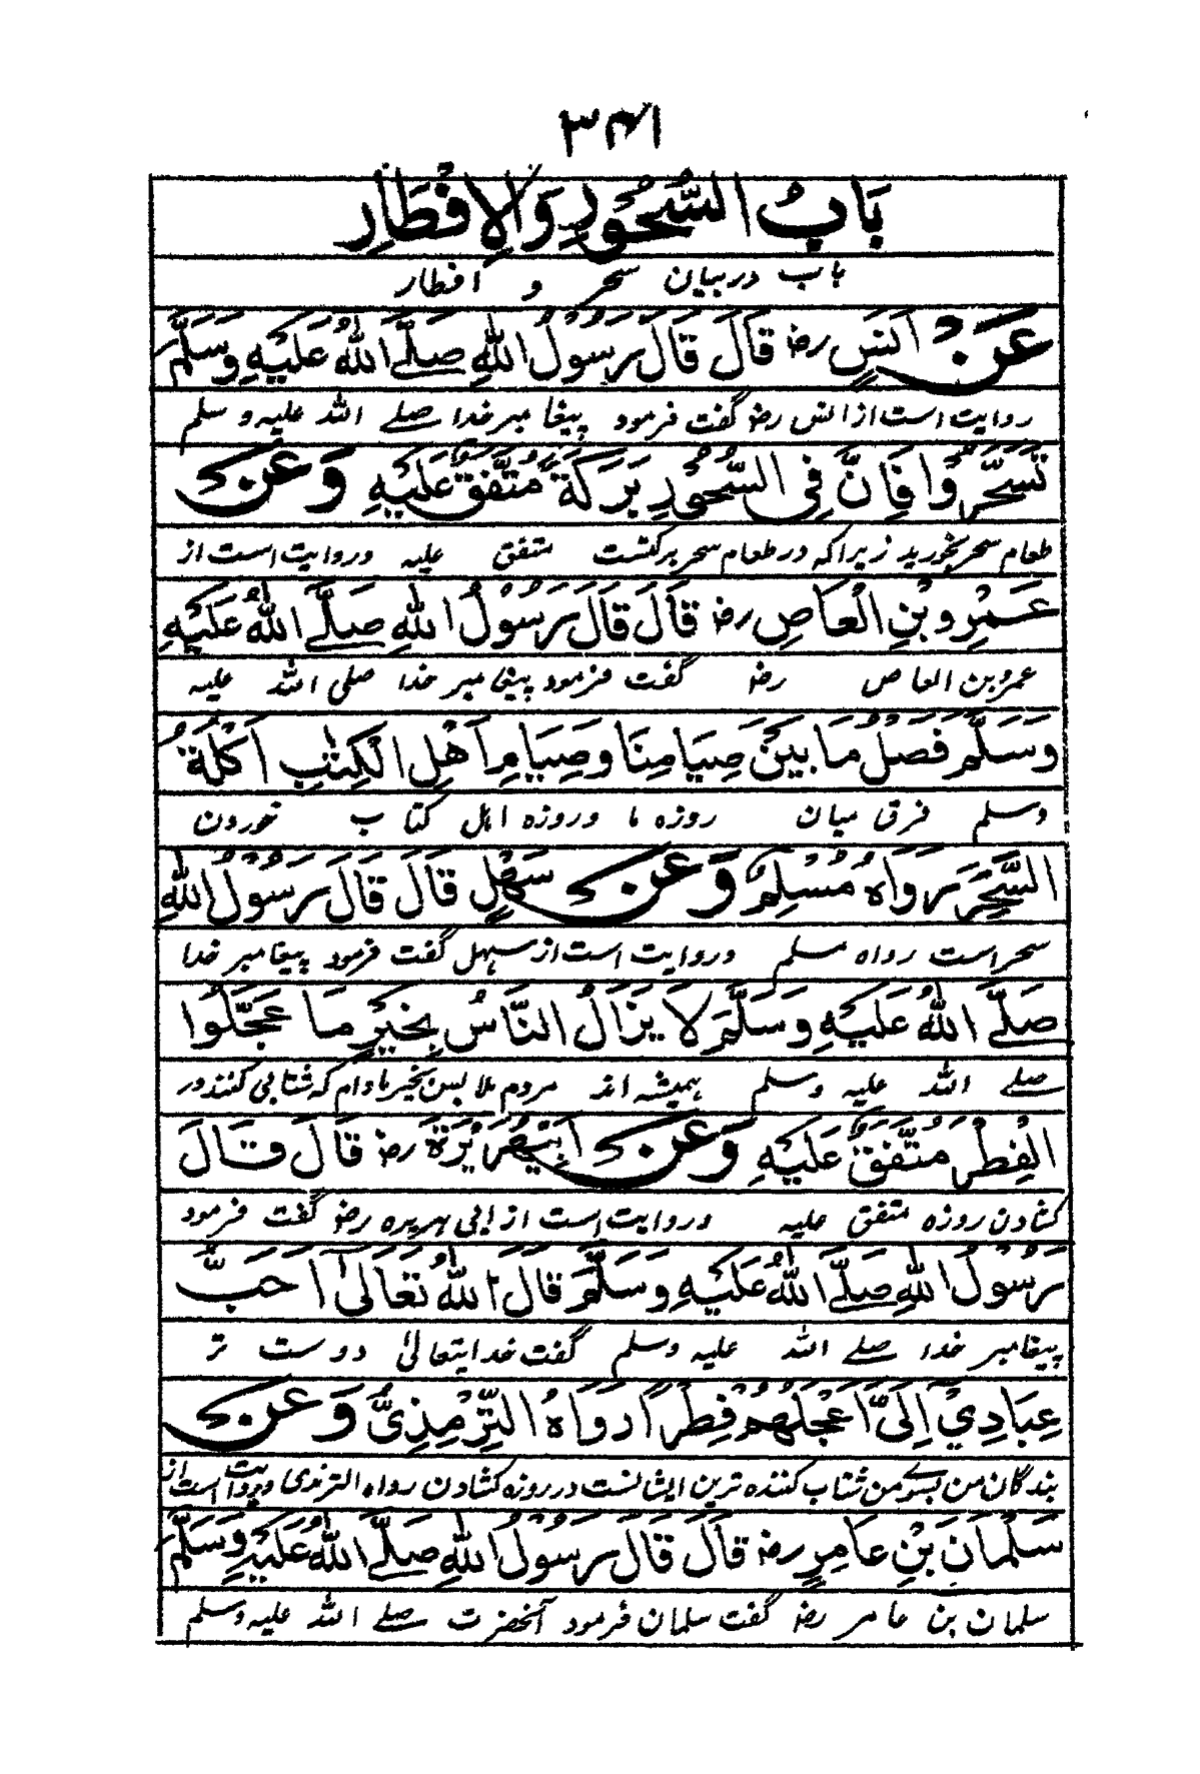 ۳۴۱
بَابُ السُّحُورِ وَالْاِفْطَارِ
باب در بیان سحر و افطار
عَنْ اَنَسٍ رض قَالَ قَالَ رَسُوْلُ اللّٰهِ صَلَّے اللّٰهُ عَلَيْهِ وَسَلَّمَ
روایت است از انس رض گفت فرمود پیغامبر خدا صلے اللہ علیہ و سلم
تَسَحَّرُوْا فَاِنَّ فِی السُّحُوْرِ بَرَكَةً مُتَّفَقٌ عَلَيْهِ وَعَنْ
طعام سحر بخورید زیرا کہ در طعام سحر برکتست متفق علیہ و روایت است از
عَمْرِو بْنِ الْعَاصِ رض قَالَ قَالَ رَسُوْلُ اللّٰهِ صَلَّے اللّٰهُ عَلَيْهِ
عمرو بن العاص رض گفت فرمود پیغامبر خدا صلی اللہ علیہ
وَسَلَّمَ فَصْلُ مَا بَيْنَ صِيَامِنَا وَصِيَامِ اَهْلِ الْكِتٰبِ اَكْلَةُ
وسلم فرق میان روزہ ما و روزہ اہل کتاب خوردن
السَّحَرِ رَوَاهُ مُسْلِمٌ وَعَنْ سَهْلٍ قَالَ قَالَ رَسُوْلُ اللّٰهِ
سحر است رواہ مسلم و روایت است از سہل گفت فرمود پیغامبر خدا
صَلَّے اللّٰهُ عَلَيْهِ وَسَلَّمَ لَا يَزَالُ النَّاسُ بِخَيْرٍ مَا عَجَّلُوا
صلے اللہ علیہ وسلم ہمیشہ اند مردم بخیر مادام کہ شتابی کنند در
الْفِطْرَ مُتَّفَقٌ عَلَيْهِ وَعَنْ اَبِيْ هُرَيْرَةَ رض قَالَ قَالَ
کشادن روزہ متفق علیہ و روایت است از ابی ہریرہ رض گفت فرمود
رَسُوْلُ اللّٰهِ صَلَّے اللّٰهُ عَلَيْهِ وَسَلَّمَ قَالَ اللّٰهُ تَعَالٰی اَحَبُّ
پیغامبر خدا صلے اللہ علیہ وسلم گفت خدایتعالیٰ دوست تر
عِبَادِيْ اِلَیَّ اَعْجَلُهُمْ فِطْرًا رَوَاهُ التِّرْمِذِیُّ وَعَنْ
بندگان من بسوے من شتاب کنندہ ترین ایشانست در روزہ کشادن رواہ الترمذی و روایت است از
سَلْمَانَ بْنِ عَامِرٍ رض قَالَ قَالَ رَسُوْلُ اللّٰهِ صَلَّے اللّٰهُ عَلَيْهِ وَسَلَّمَ
سلمان بن عامر رض گفت سلمان فرمود آنحضرت صلے اللہ علیہ وسلم